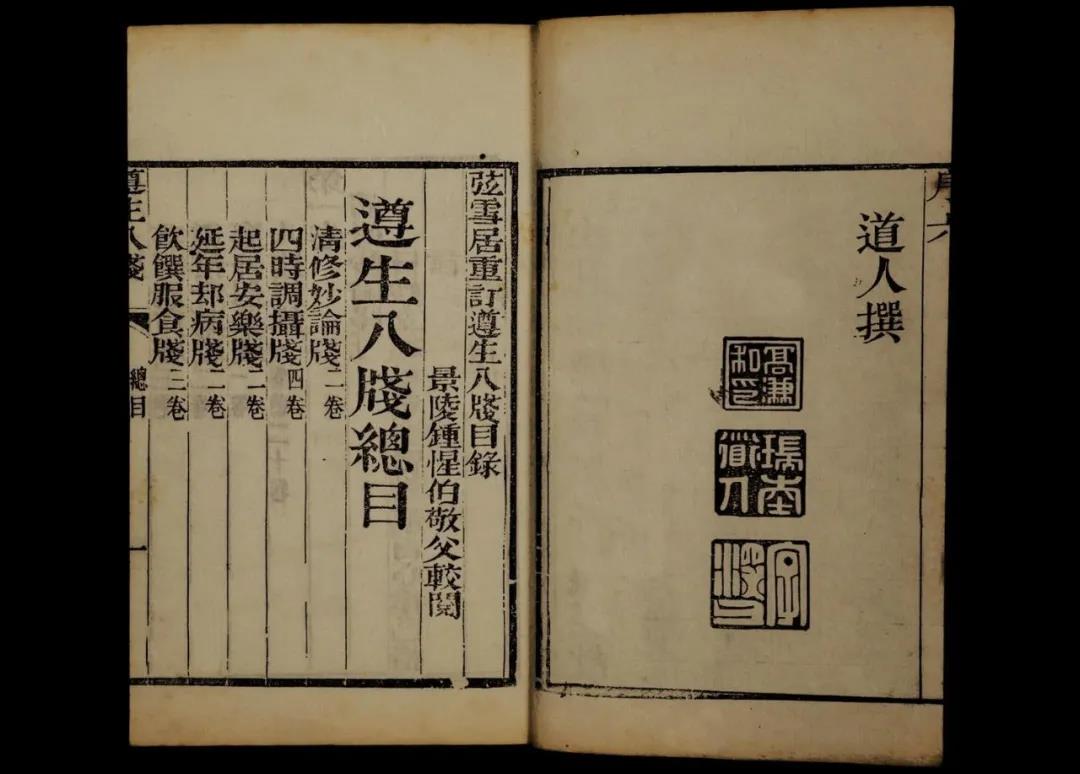 序六
道人撰
高濂私印
瑞南道人
弦雪居重訂遵生八牋目錄
景陵鍾惺伯敬父較閱
遵生八牋總目
清修妙論牋二卷
四時調攝牋四卷
起居安樂牋二卷
延年却病牋二卷
飲饌服食牋三卷
遵生八箋
總目
一